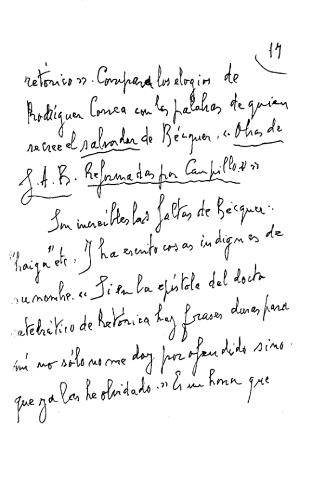 17
retórico". Compara los elogios de
Rodríguez Correa con las palabras de quien
se cree el salvador de Bécquer. "Obras de
G.A.B. Reformadas por Campillo"
Son increíbles las faltas de Bécquer:
"haiga" etc. Y ha escrito cosas indignas de
su nombre. "Si en la epístola del docto
catedrático de Retórica hay frases duras para
mí no sólo no me doy por ofendido sino
que ya las he olvidado." Es un honra que